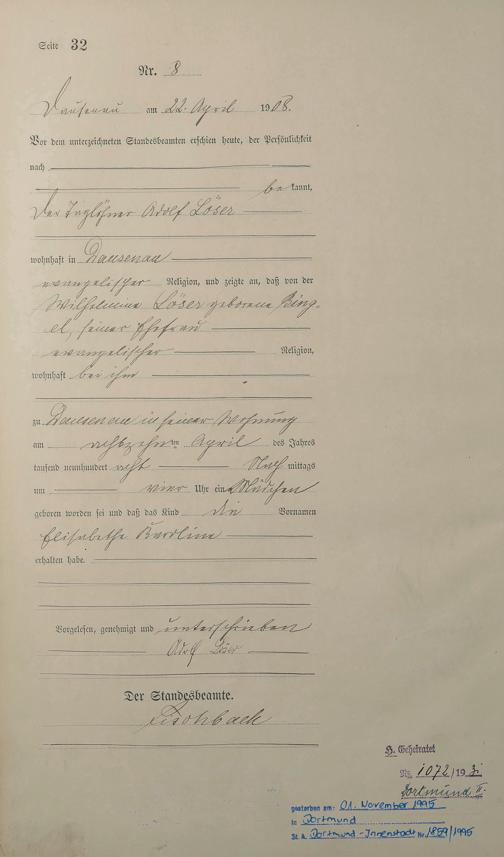 Seite 32
Nr. 8
Dausenau am 22. April 1908.
Vor dem unterzeichneten Standesbeamten erschien heute, der Persönlichkeit
nach
be kannt,
der Taglöhner Adolf Löser
wohnhaft in Dausenau
evangelischer Religion, und zeigte an, daß von der
Wilhelmine Löser geborene Bing-
el, seiner Ehefrau
evangelischer Religion,
wohnhaft bei ihm
zu Dausenau in seiner Wohnung
am achtzehnten April des Jahres
tausend neunhundert acht Nach mittags
um vier Uhr ein Mädchen
geboren worden sei und daß das Kind die Vornamen
Elisabethe Karoline
erhalten habe.
Vorgelesen, genehmigt und unterschrieben
Adolf Löser
Der Standesbeamte.
Fischbach
Geheiratet
Nr. 1072/193
Dortmund II.
gestorben am: 01. November 1995
in Dortmund
St. A. Dortmund-Innenstadt Nr. 1859/1995